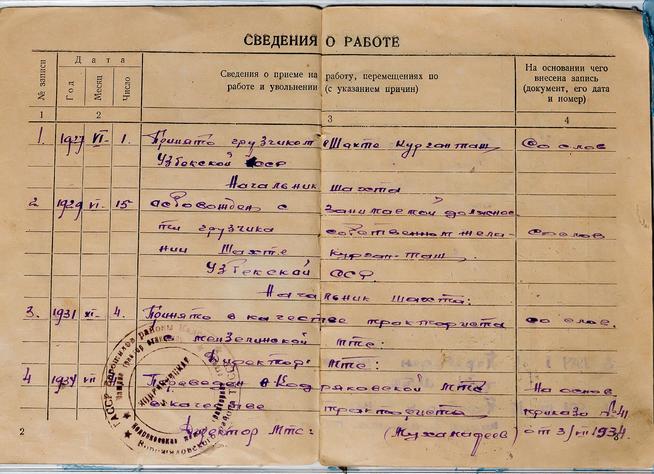 СВЕДЕНИЯ О РАБОТЕ
№ записи
Дата
Год
Месяц
Число
Сведения о приеме на работу, перемещениях по
работе и увольнении (с указанием причин)
На основании чего
внесена запись
(документ, его дата
и номер)
1 2 3 4
1. 1927 VI 1. Принято грузчиком Шахте Курганташ Со слов
Узбекской ССР
Начальник шахта
2 1929 VI 15 освобожден с занимаемой должнос
ти грузчика собственном жела- со слов
нии Шахте Курган-таш
Узбекской ССР.
Начальник шахта:
3. 1931 XI 4. Принято в качестве тракториста со слов.
мензелинской мтс:
Директор: мтс:
4 1934 VII Переведен в Кадряковской мтс На основ
в качестве тракториста приказа № 41
Директор мтс: (Мухамадеев) от 3/VII 1934.
2